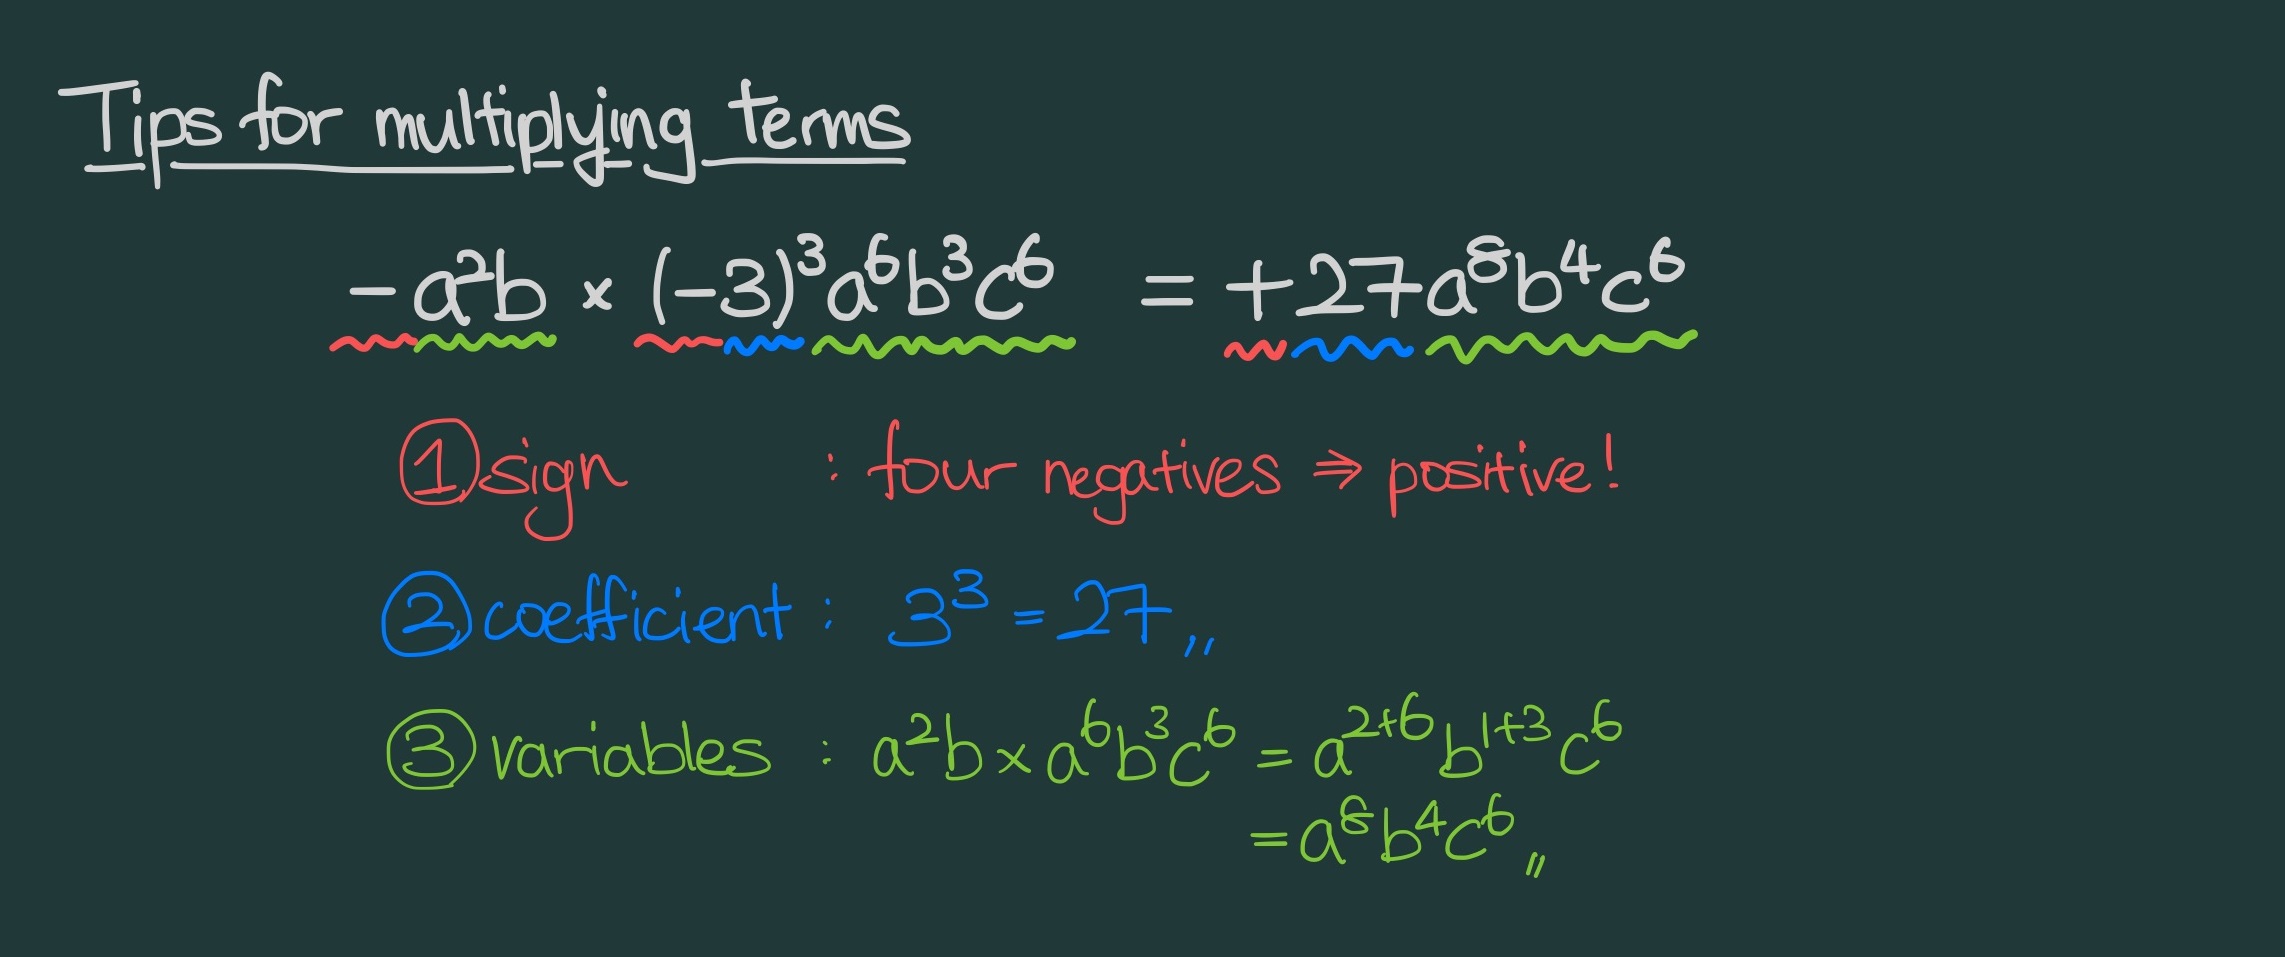 Tips for multiplying terms
-a²b × (-3)³a⁶b³c⁶ = +27a⁸b⁴c⁶
① sign : four negatives ⇒ positive!
② coefficient : 3³ = 27,,
③ variables : a²b × a⁶b³c⁶ = a²⁺⁶b¹⁺³c⁶
= a⁸b⁴c⁶,,